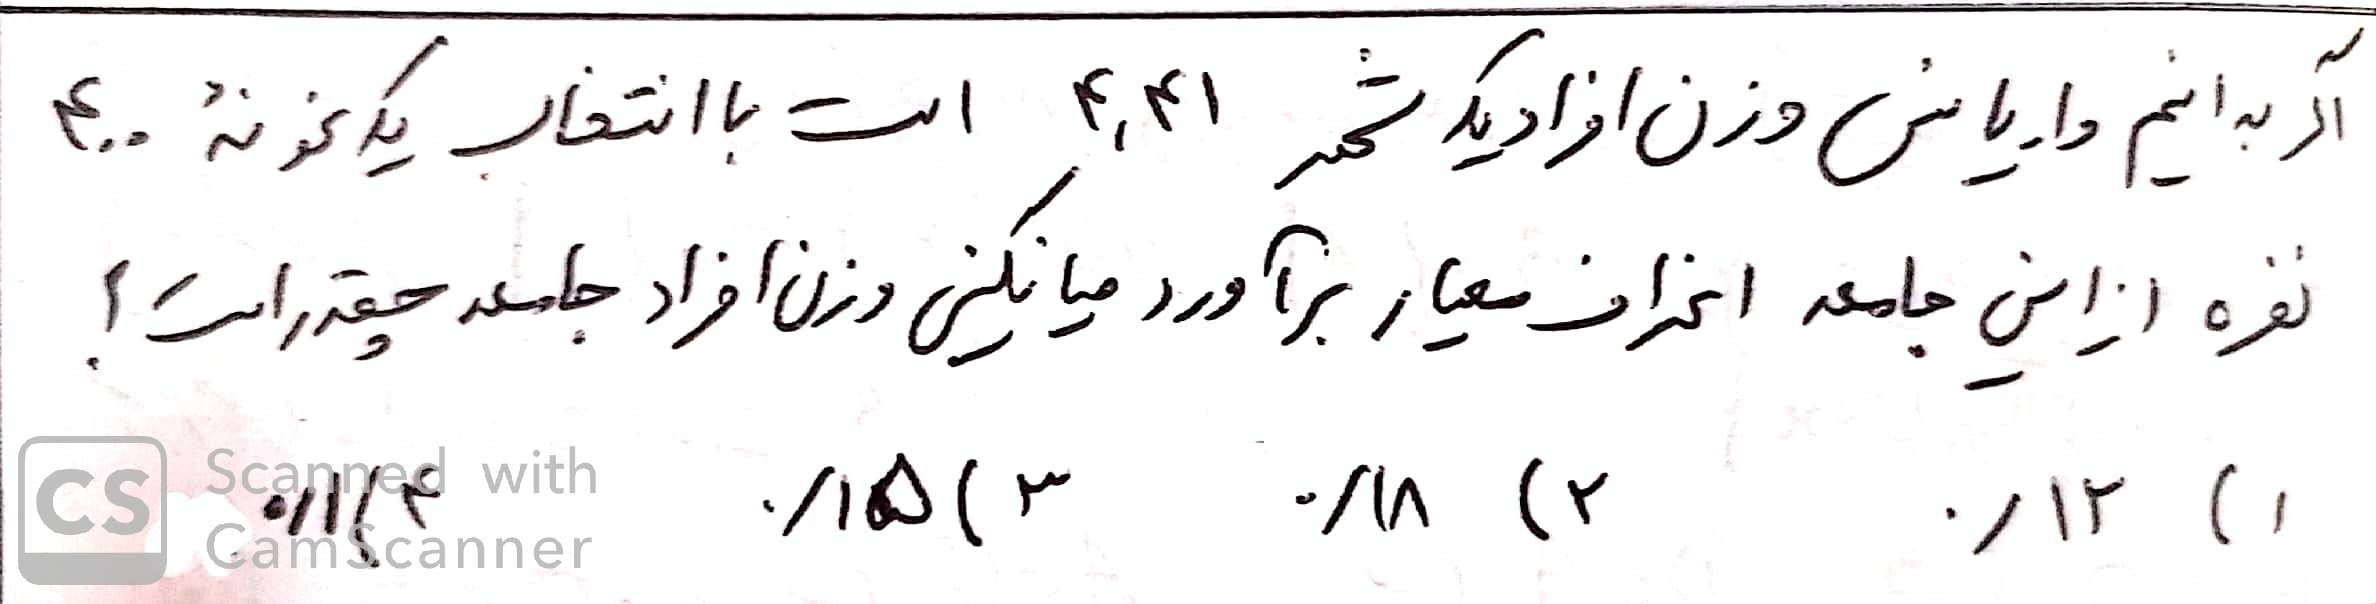 اگر بدانیم واریانس وزن افراد یک شهر ۴,۴۱ است با انتخاب یک نمونهٔ ۴۰۰
نفره از این جامعه انحراف معیار برآورد میانگین وزن افراد جامعه چقدر است؟
۱) ۰/۱۲ ۲) ۰/۱۸ ۳) ۰/۱۵ ۴) ۰/۱
CS Scanned with
CamScanner